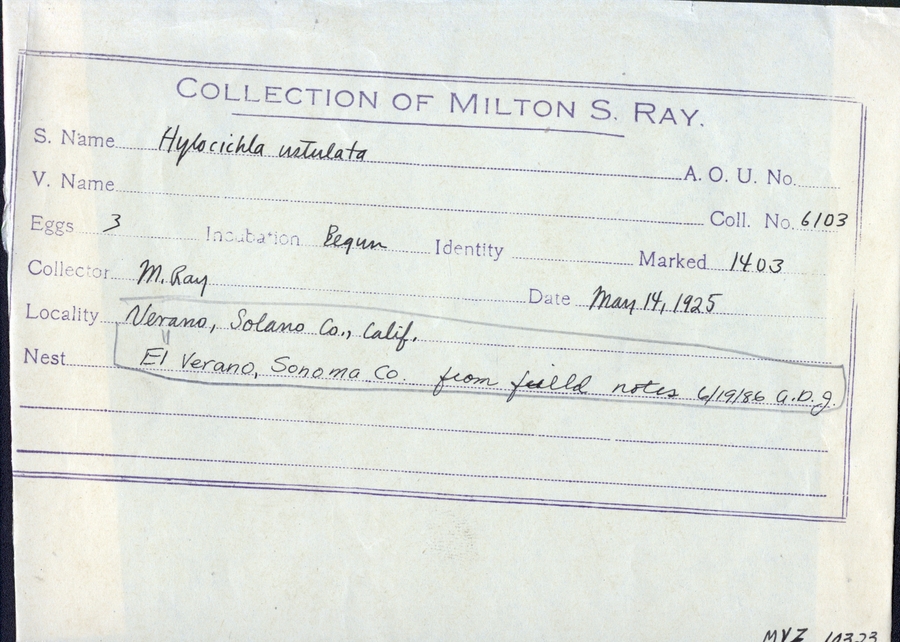 COLLECTION OF MILTON S. RAY.
S. Name Hylocichla ustulata A. O. U. No.
V. Name Coll. No. 6103
Eggs 3 Incubation Begun Identity Marked 1403
Collector M. Ray Date May 14, 1925
Locality Verano, Solano Co., Calif.
Nest El Verano, Sonoma Co. from fieild notes 6/19/86 A.D.J.
MVZ